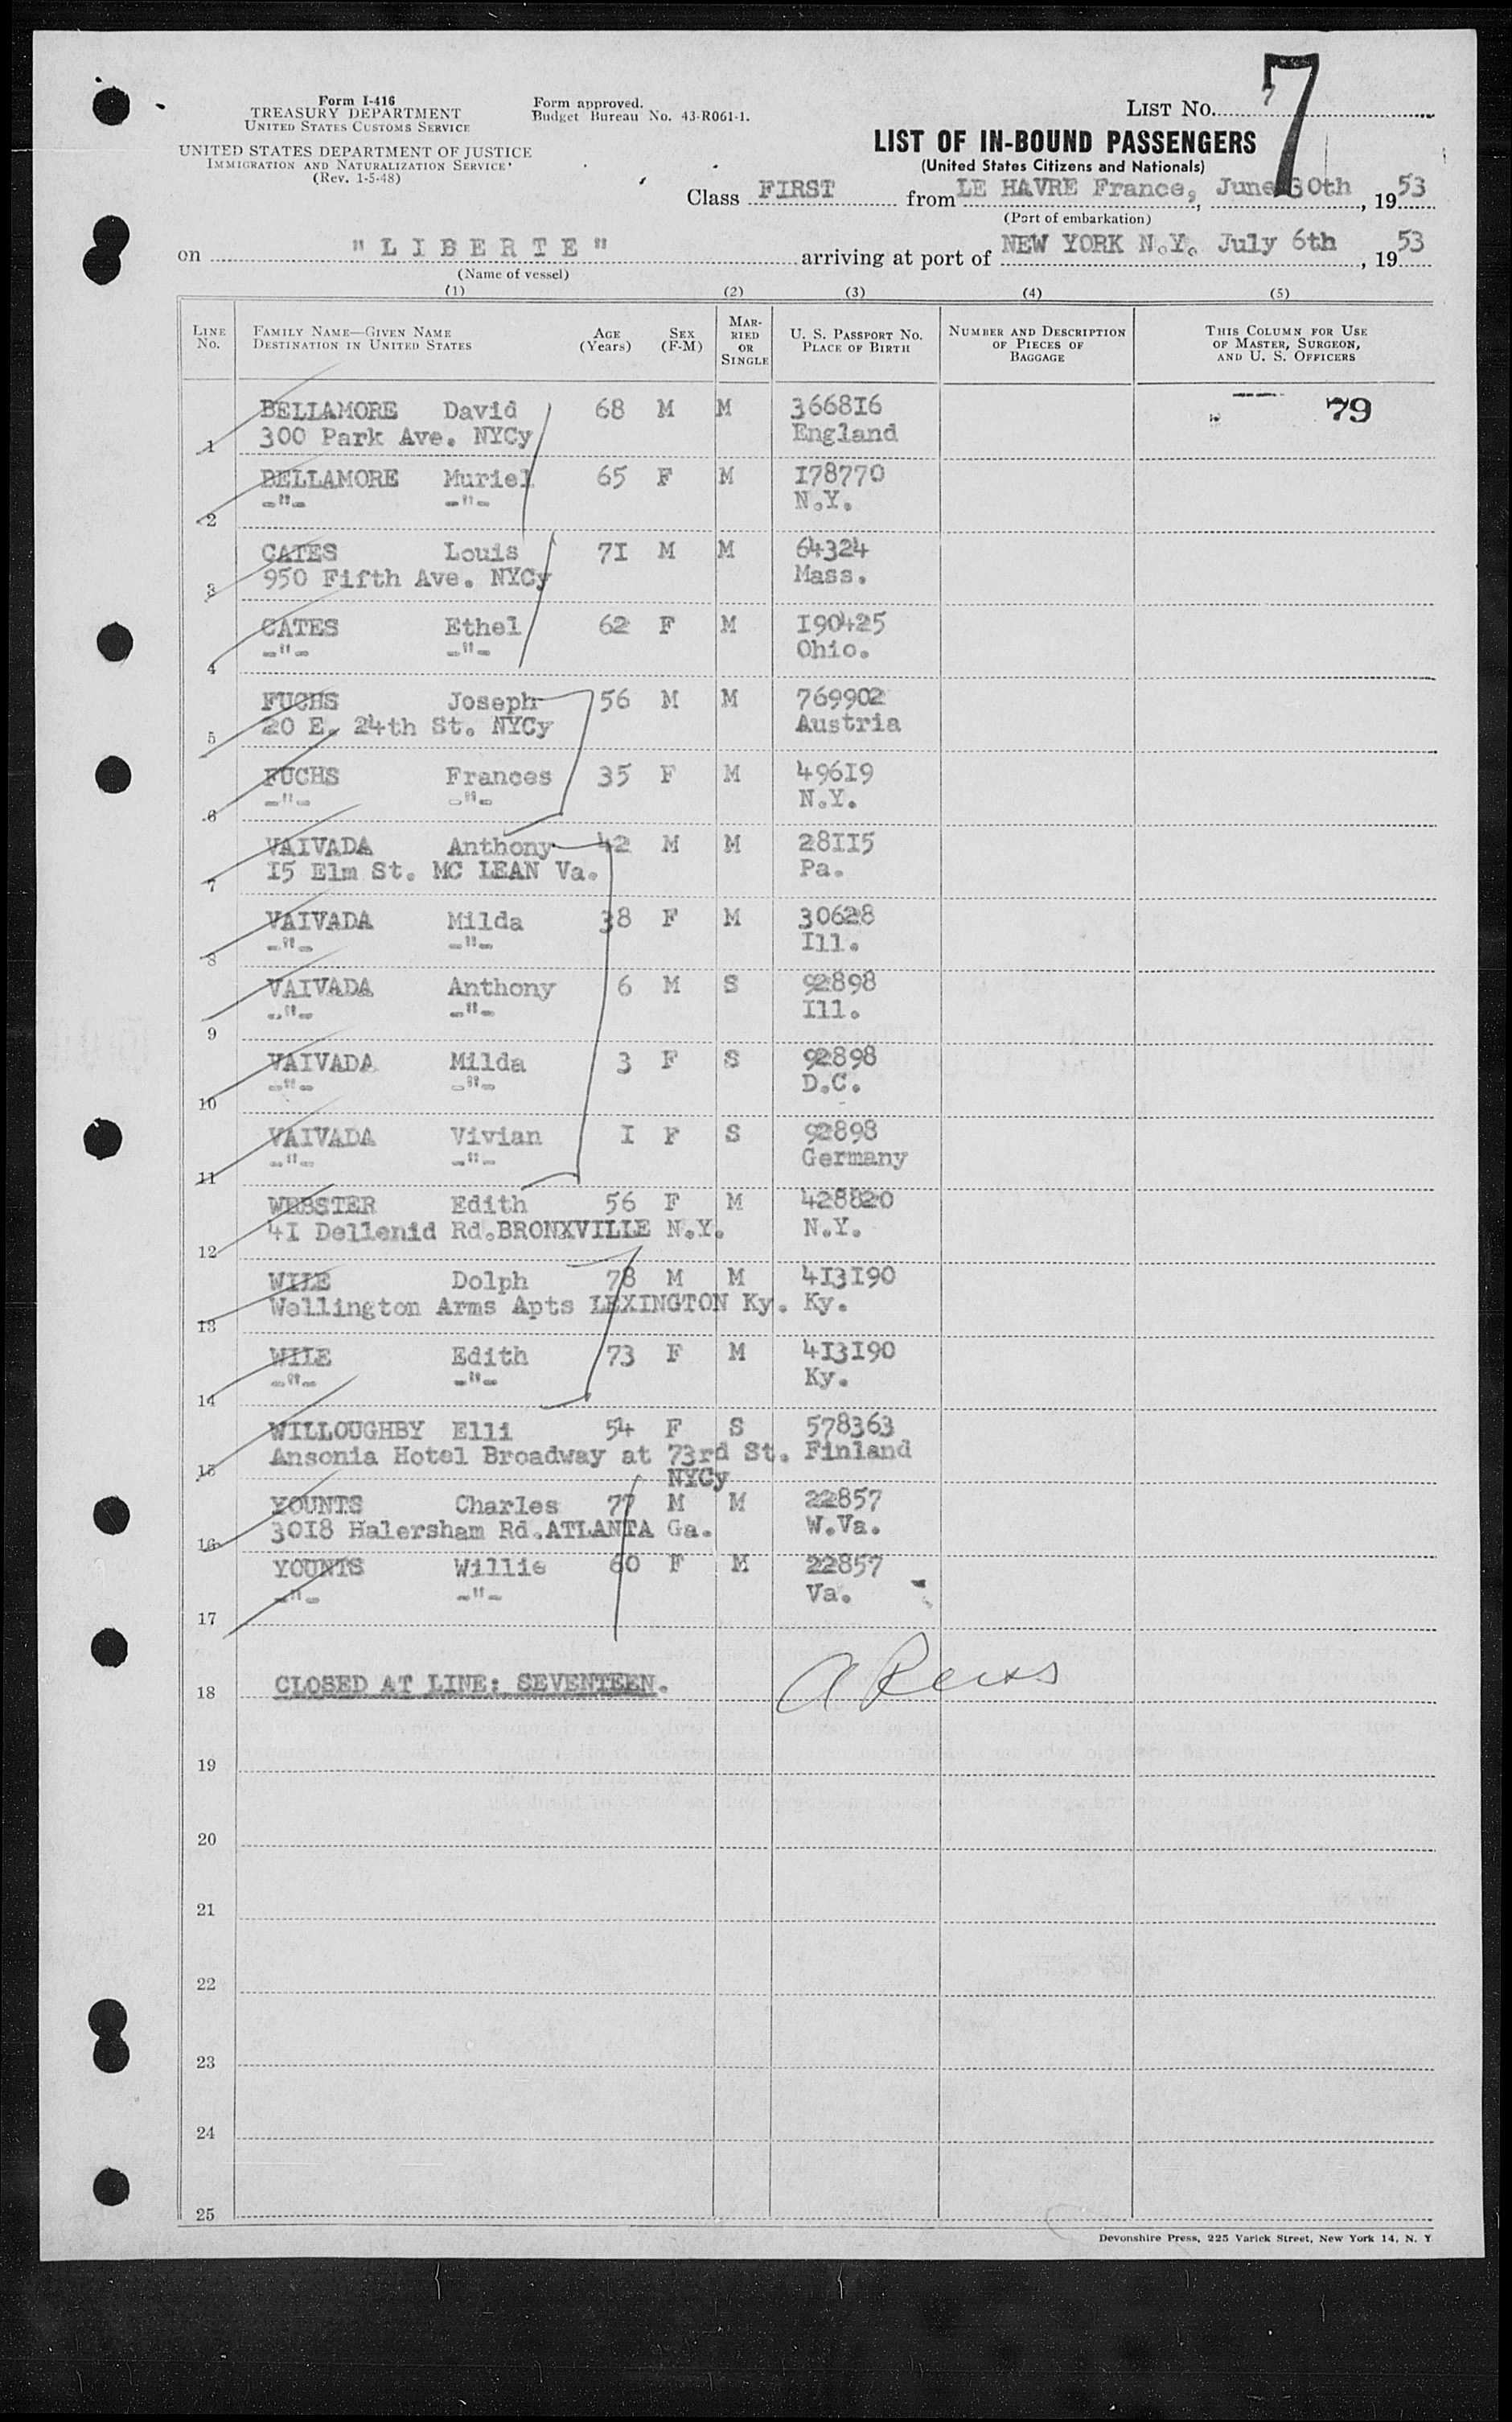 Form I-416
TREASURY DEPARTMENT
UNITED STATES CUSTOMS SERVICE
UNITED STATES DEPARTMENT OF JUSTICE
IMMIGRATION AND NATURALIZATION SERVICE
(Rev. 1-5-48)
Form approved.
Budget Bureau No. 43-R061-1.
LIST No. 7
7
LIST OF IN-BOUND PASSENGERS
(United States Citizens and Nationals)
Class FIRST from LE HAVRE France, June 30th, 1953
(Port of embarkation)
on "LIBERTE" arriving at port of NEW YORK N.Y. July 6th, 1953
(Name of vessel)
(1) (2) (3) (4) (5)
LINE No. FAMILY NAME—GIVEN NAME DESTINATION IN UNITED STATES AGE (Years) SEX (F-M) MARRIED OR SINGLE U. S. PASSPORT No. PLACE OF BIRTH NUMBER AND DESCRIPTION OF PIECES OF BAGGAGE THIS COLUMN FOR USE OF MASTER, SURGEON, AND U. S. OFFICERS
BELLAMORE David 68 M M 366816 79
1 300 Park Ave. NYCy England
BELLAMORE Muriel 65 F M 178770
2 -"- -"- N.Y.
CATES Louis 71 M M 64324
3 950 Fifth Ave. NYCy Mass.
CATES Ethel 62 F M 190425
4 -"- -"- Ohio.
FUCHS Joseph 56 M M 769902
5 20 E. 24th St. NYCy Austria
FUCHS Frances 35 F M 49619
6 -"- -"- N.Y.
VAIVADA Anthony 42 M M 28115
7 15 Elm St. MC LEAN Va. Pa.
VAIVADA Milda 38 F M 30628
8 -"- -"- Ill.
VAIVADA Anthony 6 M S 92898
9 -"- -"- Ill.
VAIVADA Milda 3 F S 92898
10 -"- -"- D.C.
VAIVADA Vivian 1 F S 92898
11 -"- -"- Germany
WEBSTER Edith 56 F M 428820
12 41 Dellenid Rd. BRONXVILLE N.Y. N.Y.
WILE Dolph 78 M M 413190
13 Wellington Arms Apts LEXINGTON Ky. Ky.
WILE Edith 73 F M 413190
14 -"- -"- Ky.
WILLOUGHBY Elli 54 F S 578363
15 Ansonia Hotel Broadway at 73rd St. Finland
NYCy
YOUNTS Charles 77 M M 22857
16 3018 Halersham Rd. ATLANTA Ga. W.Va.
YOUNTS Willie 60 F M 22857
17 -"- -"- Va.
18 CLOSED AT LINE: SEVENTEEN.
19
20
21
22
23
24
25
Devonshire Press, 225 Varick Street, New York 14, N. Y